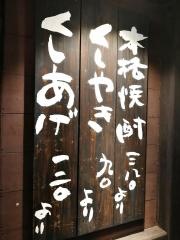 本格焼酎 三八〇より
くしやき 九〇より
くしあげ 一二〇より